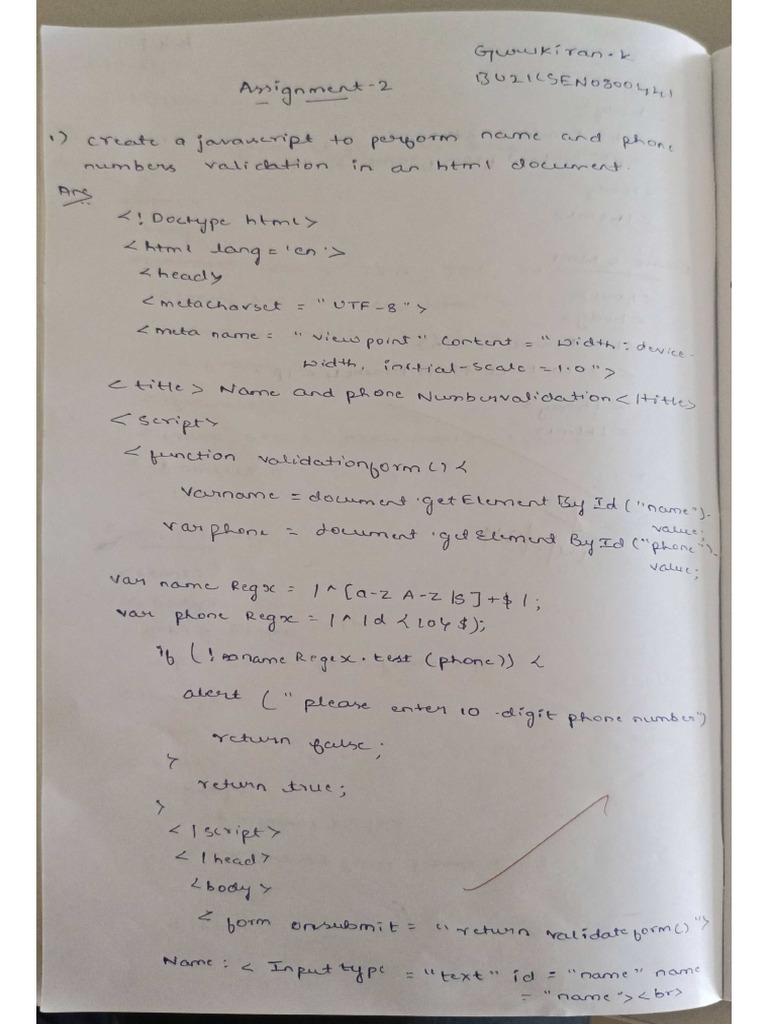 Gurukiran.k
Assignment-2
BU21CSEN0300441
1) create a javascript to perform name and phone
numbers validation in an html document.
Ans
<! Doctype html>
<html lang = 'en'>
<head>
<metacharset = "UTF-8">
<meta name = "viewpoint" content = "width = device-
width, initial-scale = 1.0">
<title> Name and phone Numbervalidation </title>
<script>
<function validationform () {
varname = document.getElement By Id ("name").
value;
varphone = document.getElement By Id ("phone").
value;
var name Regx = /^[a-z A-Z \S]+$/;
var phone Regx = /^\d{10}$/;
if (! name Regex.test (phone)) {
alert (" please enter 10 -digit phone number")
return false;
}
return true;
}
</script>
</head>
<body>
< form onsubmit = "return validateform()">
Name : < Input type = "text" id = "name" name
= "name"><br>